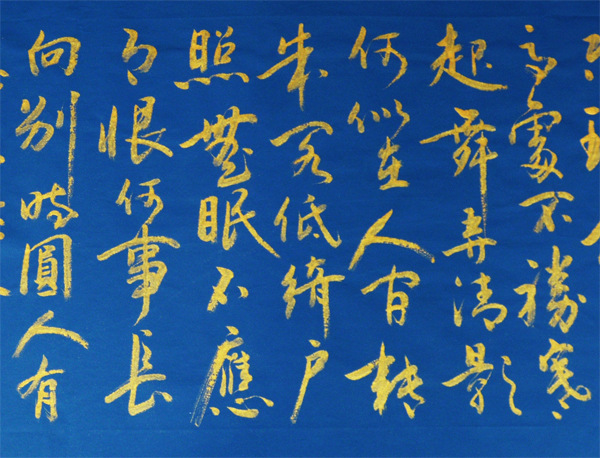 高處不勝寒
起舞弄清影
何似在人間轉
朱閣低綺户
照無眠不應
有恨何事長
向别時圓人有